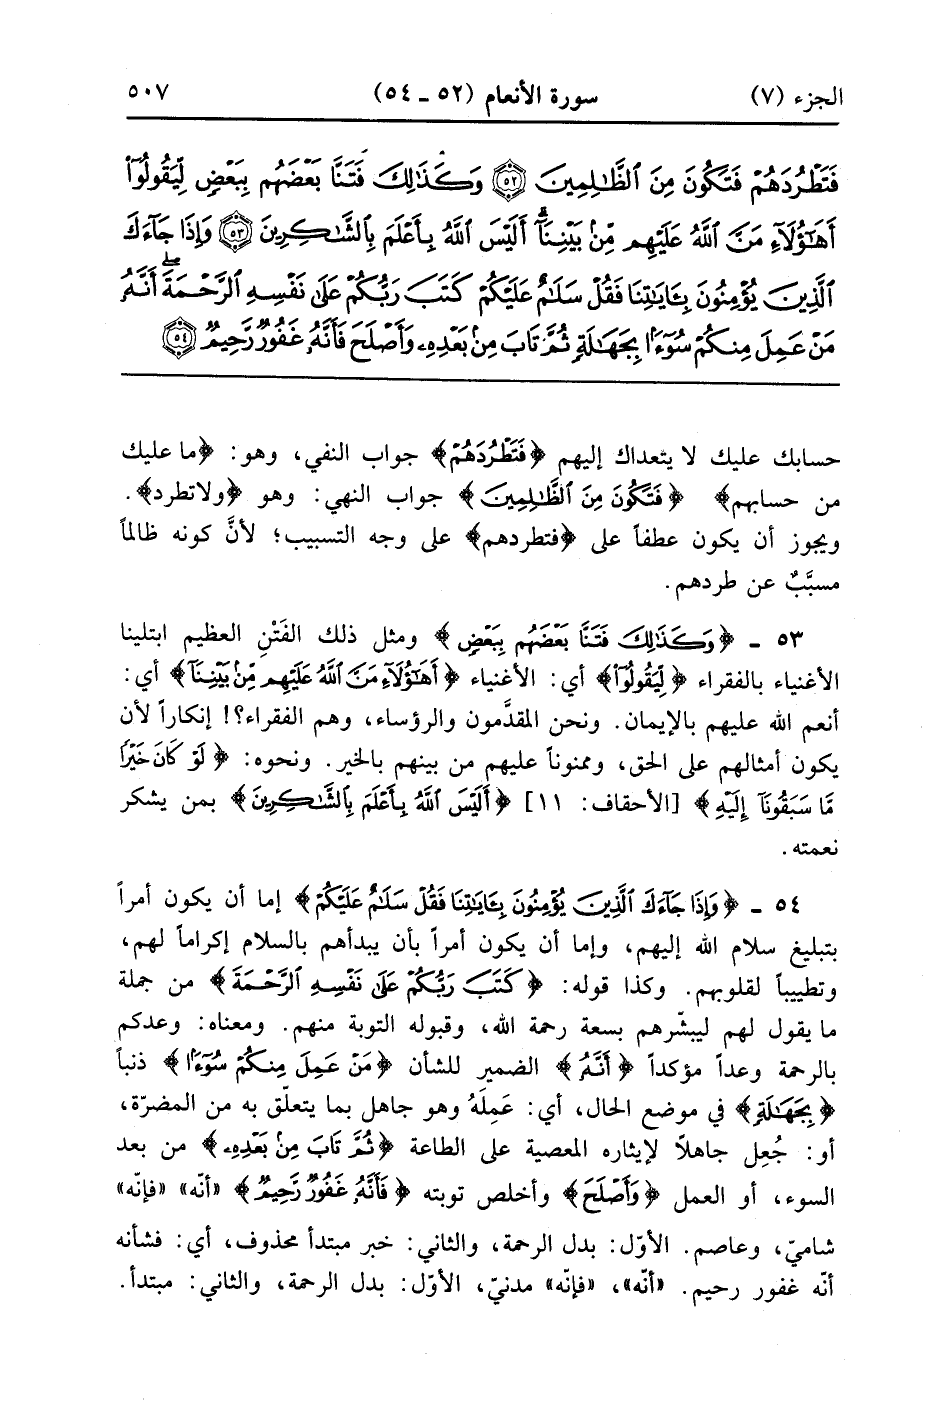 الجزء (٧) سورة الأنعام (٥٢ ـ ٥٤) ٥٠٧
فَتَطْرُدَهُمْ فَتَكُونَ مِنَ ٱلظَّٰلِمِينَ ٥٢ وَكَذَٰلِكَ فَتَنَّا بَعْضَهُم بِبَعْضٍ لِّيَقُولُوٓا۟
أَهَٰٓؤُلَآءِ مَنَّ ٱللَّهُ عَلَيْهِم مِّنۢ بَيْنِنَآ ۗ أَلَيْسَ ٱللَّهُ بِأَعْلَمَ بِٱلشَّٰكِرِينَ ٥٣ وَإِذَا جَآءَكَ
ٱلَّذِينَ يُؤْمِنُونَ بِـَٔايَٰتِنَا فَقُلْ سَلَٰمٌ عَلَيْكُمْ ۖ كَتَبَ رَبُّكُمْ عَلَىٰ نَفْسِهِ ٱلرَّحْمَةَ ۖ أَنَّهُۥ
مَنْ عَمِلَ مِنكُمْ سُوٓءًۢا بِجَهَٰلَةٍ ثُمَّ تَابَ مِنۢ بَعْدِهِۦ وَأَصْلَحَ فَأَنَّهُۥ غَفُورٌ رَّحِيمٌ ٥٤
حسابك عليك لا يتعداك إليهم ﴿فَتَطْرُدَهُمْ﴾ جواب النفي، وهو: ﴿ما عليك
من حسابهم﴾ ﴿فَتَكُونَ مِنَ ٱلظَّٰلِمِينَ﴾ جواب النهي: وهو ﴿ولاتطرد﴾.
ويجوز أن يكون عطفاً على ﴿فتطردهم﴾ على وجه التسبيب؛ لأنَّ كونه ظالماً
مسبَّبٌ عن طردهم.
٥٣ ـ ﴿وَكَذَٰلِكَ فَتَنَّا بَعْضَهُم بِبَعْضٍ﴾ ومثل ذلك الفَتْنِ العظيم ابتلينا
الأغنياء بالفقراء ﴿لِّيَقُولُوٓا۟﴾ أي: الأغنياء ﴿أَهَٰٓؤُلَآءِ مَنَّ ٱللَّهُ عَلَيْهِم مِّنۢ بَيْنِنَآ﴾ أي:
أنعم الله عليهم بالإيمان. ونحن المقدَّمون والرؤساء، وهم الفقراء؟! إنكاراً لأن
يكون أمثالهم على الحق، وممنوناً عليهم من بينهم بالخير. ونحوه: ﴿لَوْ كَانَ خَيْرًا
مَّا سَبَقُونَآ إِلَيْهِ﴾ [الأحقاف: ١١] ﴿أَلَيْسَ ٱللَّهُ بِأَعْلَمَ بِٱلشَّٰكِرِينَ﴾ بمن يشكر
نعمته.
٥٤ ـ ﴿وَإِذَا جَآءَكَ ٱلَّذِينَ يُؤْمِنُونَ بِـَٔايَٰتِنَا فَقُلْ سَلَٰمٌ عَلَيْكُمْ﴾ إما أن يكون أمراً
بتبليغ سلام الله إليهم، وإما أن يكون أمراً بأن يبدأهم بالسلام إكراماً لهم،
وتطييباً لقلوبهم. وكذا قوله: ﴿كَتَبَ رَبُّكُمْ عَلَىٰ نَفْسِهِ ٱلرَّحْمَةَ﴾ من جملة
ما يقول لهم ليبشّرهم بسعة رحمة الله، وقبوله التوبة منهم. ومعناه: وعدكم
بالرحمة وعداً مؤكداً ﴿أَنَّهُۥ﴾ الضمير للشأن ﴿مَنْ عَمِلَ مِنكُمْ سُوٓءًۢا﴾ ذنباً
﴿بِجَهَٰلَةٍ﴾ في موضع الحال، أي: عَمِلَهُ وهو جاهل بما يتعلّق به من المضرّة،
أو: جُعِل جاهلاً لإيثاره المعصية على الطاعة ﴿ثُمَّ تَابَ مِنۢ بَعْدِهِۦ﴾ من بعد
السوء، أو العمل ﴿وَأَصْلَحَ﴾ وأخلص توبته ﴿فَأَنَّهُۥ غَفُورٌ رَّحِيمٌ﴾ «أنّه» «فإنّه»
شاميّ، وعاصم. الأوّل: بدل الرحمة، والثاني: خبر مبتدأ محذوف، أي: فشأنه
أنّه غفور رحيم. «أنّه»، «فإنّه» مدنيّ، الأوّل: بدل الرحمة، والثاني: مبتدأ.